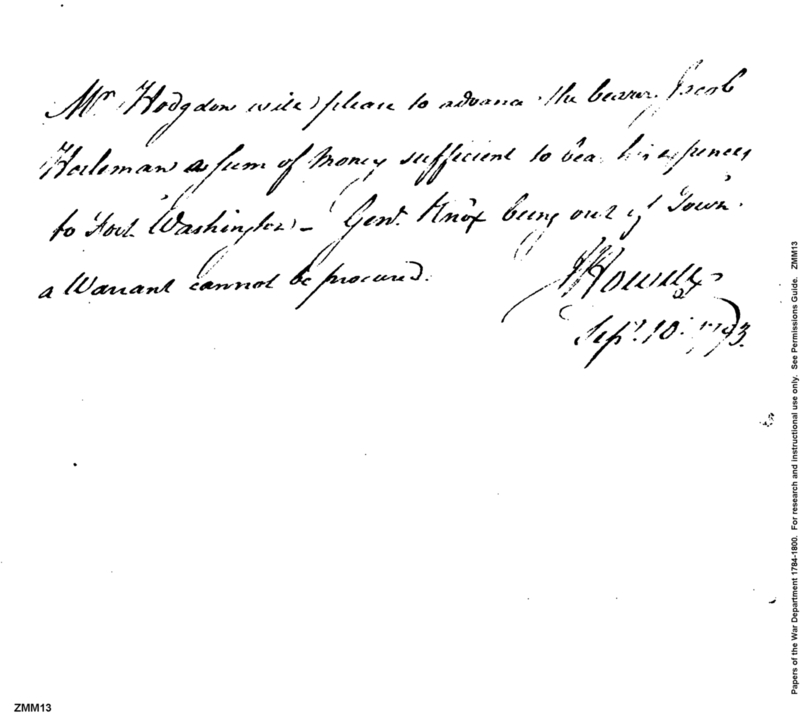 Mr. Hodgdon will please to advance the bearer Jacob
a sum of money sufficient to bear his expences
to Fort Washington – Genl. Knox being out of Town
a Warrant cannot be procured.
J Howell
Sepr. 10. 1793.
Papers of the War Department 1784-1800. For research and instructional use only. See Permissions Guide. ZMM13
ZMM13